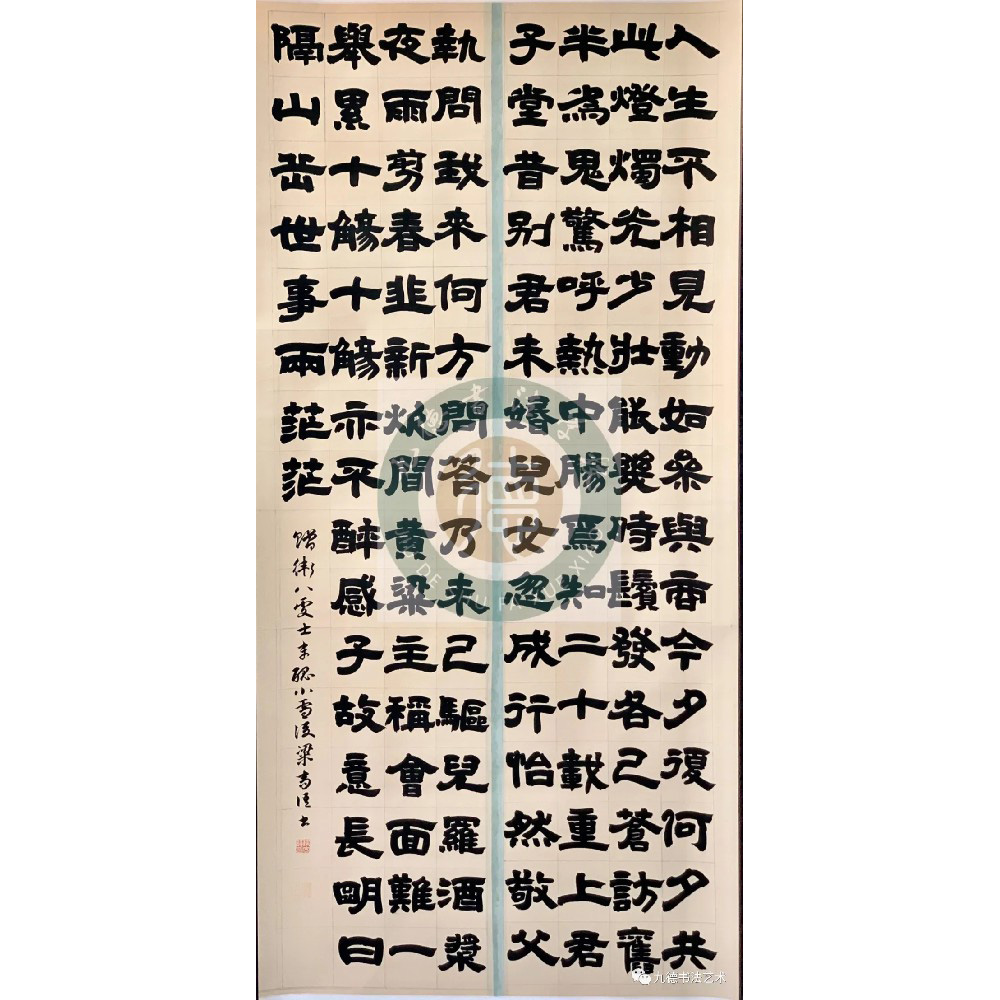 人生不相見動如參與商今夕復何夕共
此燈燭光少壯能幾時鬢發各已蒼訪舊
半為鬼驚呼熱中腸焉知二十載重上君
子堂昔別君未婚兒女忽成行怡然敬父
執問我來何方問答乃未已驅兒羅酒漿
夜雨剪春韭新炊間黄粱主稱會面難一
舉累十觴十觴亦不醉感子故意長明日
隔山岳世事兩茫茫
贈衛八處士
小雪後梁
書
德
九德书法艺术